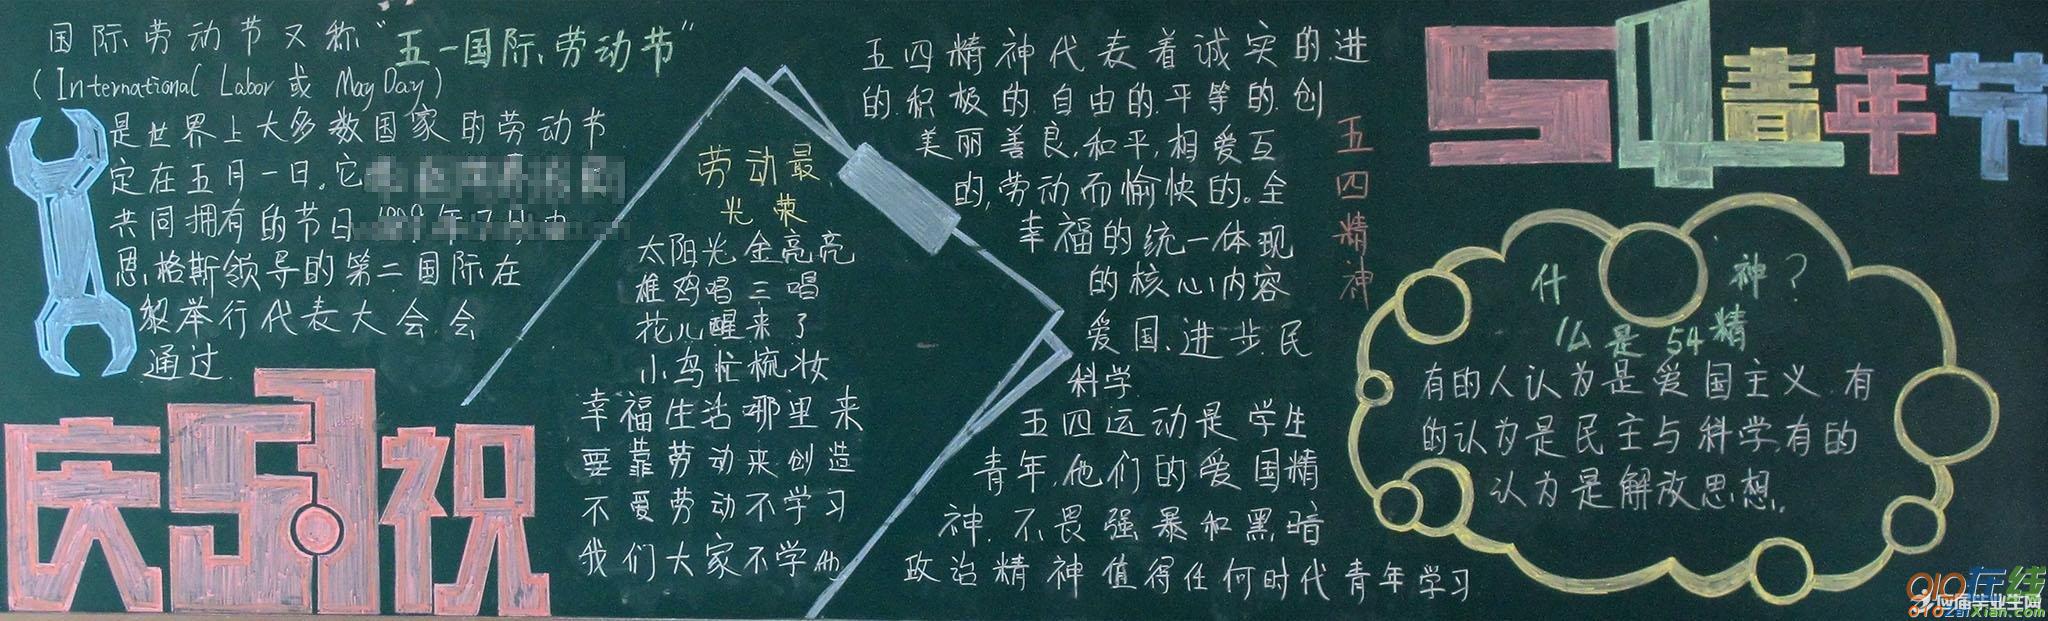 国际劳动节又称"五一国际劳动节"
(International Labor或 May Day)
是世界上大多数国家的劳动节
定在五月一日。它
共同拥有的节日
恩格斯领导的第二国际在
黎举行代表大会会
通过
庆51祝
劳动最
光荣
太阳光金亮亮
雄鸡唱三唱
花儿醒来了
小鸟忙梳妆
幸福生活哪里来
要靠劳动来创造
不爱劳动不学习
我们大家不学他
五四精神代表着诚实的.进
的.积极的.自由的.平等的.创
美丽善良.和平,相爱互
的,劳动而愉快的。全
幸福的统一体现
的核心内容
爱国.进步.民
科学
五四运动是学生
青年,他们的爱国精
神.不畏强暴和黑暗
政治精神值得任何时代青年学习
五四精神
54青年节
什么是54精神?
有的人认为是爱国主义.有
的认为是民主与科学,有的
认为是解放思想.
010在线
应届毕业生网
010zaixian.com